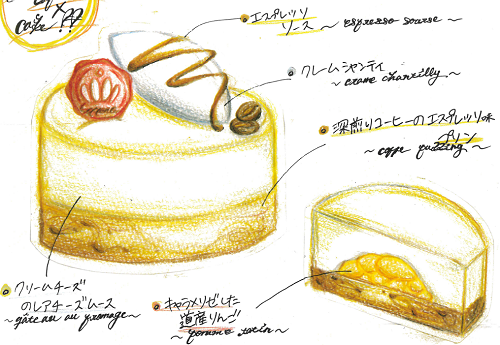 ×
cafe ??
エスプレッソ
ソース
~ espresso sourse ~
クレームシャンティ
~ creme chantilly ~
深煎りコーヒーのエスプレッソ味
プリン
~ cafe pudding ~
クリームチーズ
のレアチーズムース
~ gâteau au fromage ~
キャラメリゼした
道産りんご
~ pomme tatin ~